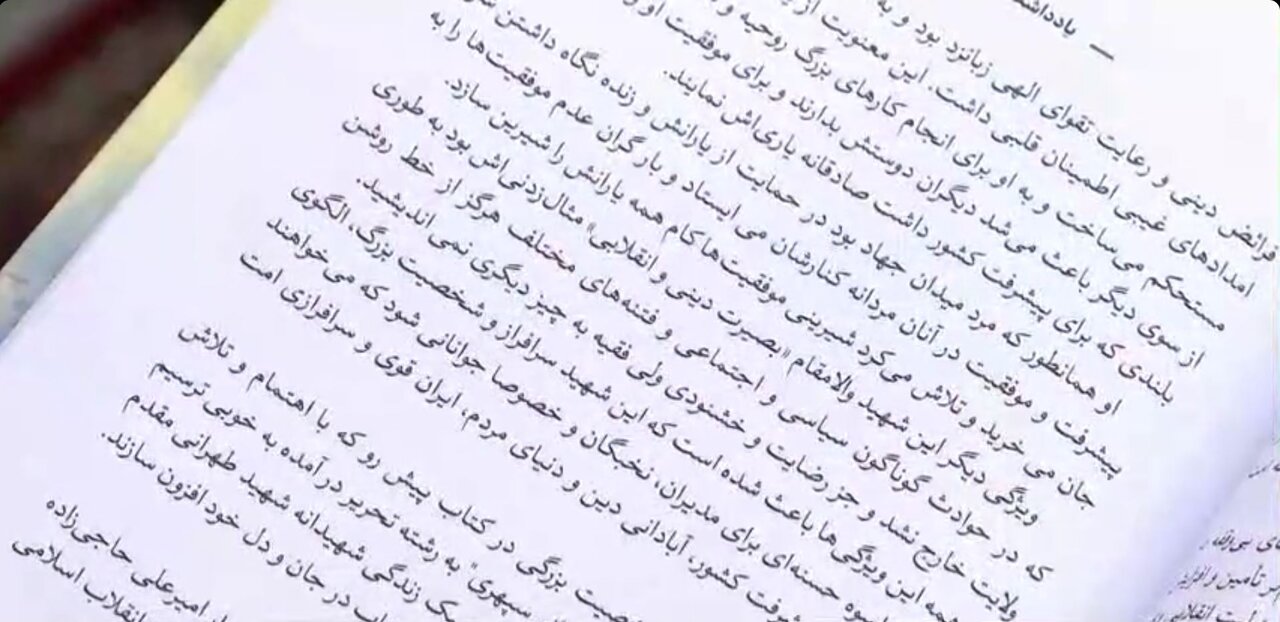 — یادداشت
فرائض دینی و رعایت تقوای الهی زبانزد بود و به
امدادهای غیبی اطمینان قلبی داشت. این معنویت از
مستحکم می‌ساخت و به او برای انجام کارهای بزرگ روحیه و
از سوی دیگر باعث می‌شد دیگران دوستش بدارند و برای موفقیت او
بلندی که برای پیشرفت کشور داشت صادقانه یاری‌اش نمایند.
او همانطور که مرد میدان جهاد بود در حمایت از یارانش و زنده نگاه داشتن
پیشرفت و موفقیت در آنان مردانه کنارشان می ایستاد و بار گران عدم موفقیت‌ها را به
جان می خرید و تلاش می‌کرد شیرینی موفقیت‌ها کام همه یارانش را شیرین سازد.
ویژگی دیگر این شهید والامقام «بصیرت دینی و انقلابی» مثال‌زدنی‌اش بود به طوری
که در حوادث گوناگون سیاسی و اجتماعی و فتنه‌های مختلف هرگز از خط روشن
ولایت خارج نشد و جز رضایت و خشنودی ولی فقیه به چیز دیگری نمی اندیشید.
همه این ویژگی‌ها باعث شده است که این شهید سرافراز و شخصیت بزرگ، الگوی
اسوه حسنه‌ای برای مدیران، نخبگان و خصوصا جوانانی شود که می‌خواهند
کشور، آبادانی دین و دنیای مردم، ایران قوی و سرافرازی امت
بزرگی در کتاب پیش رو که با اهتمام و تلاش
سپهری" به رشته تحریر در آمده به خوبی ترسیم
زندگی شهیدانه شهید طهرانی مقدم
در جان و دل خود افزون سازند.
امیرعلی حاجی‌زاده
انقلاب اسلامی
تأمین و